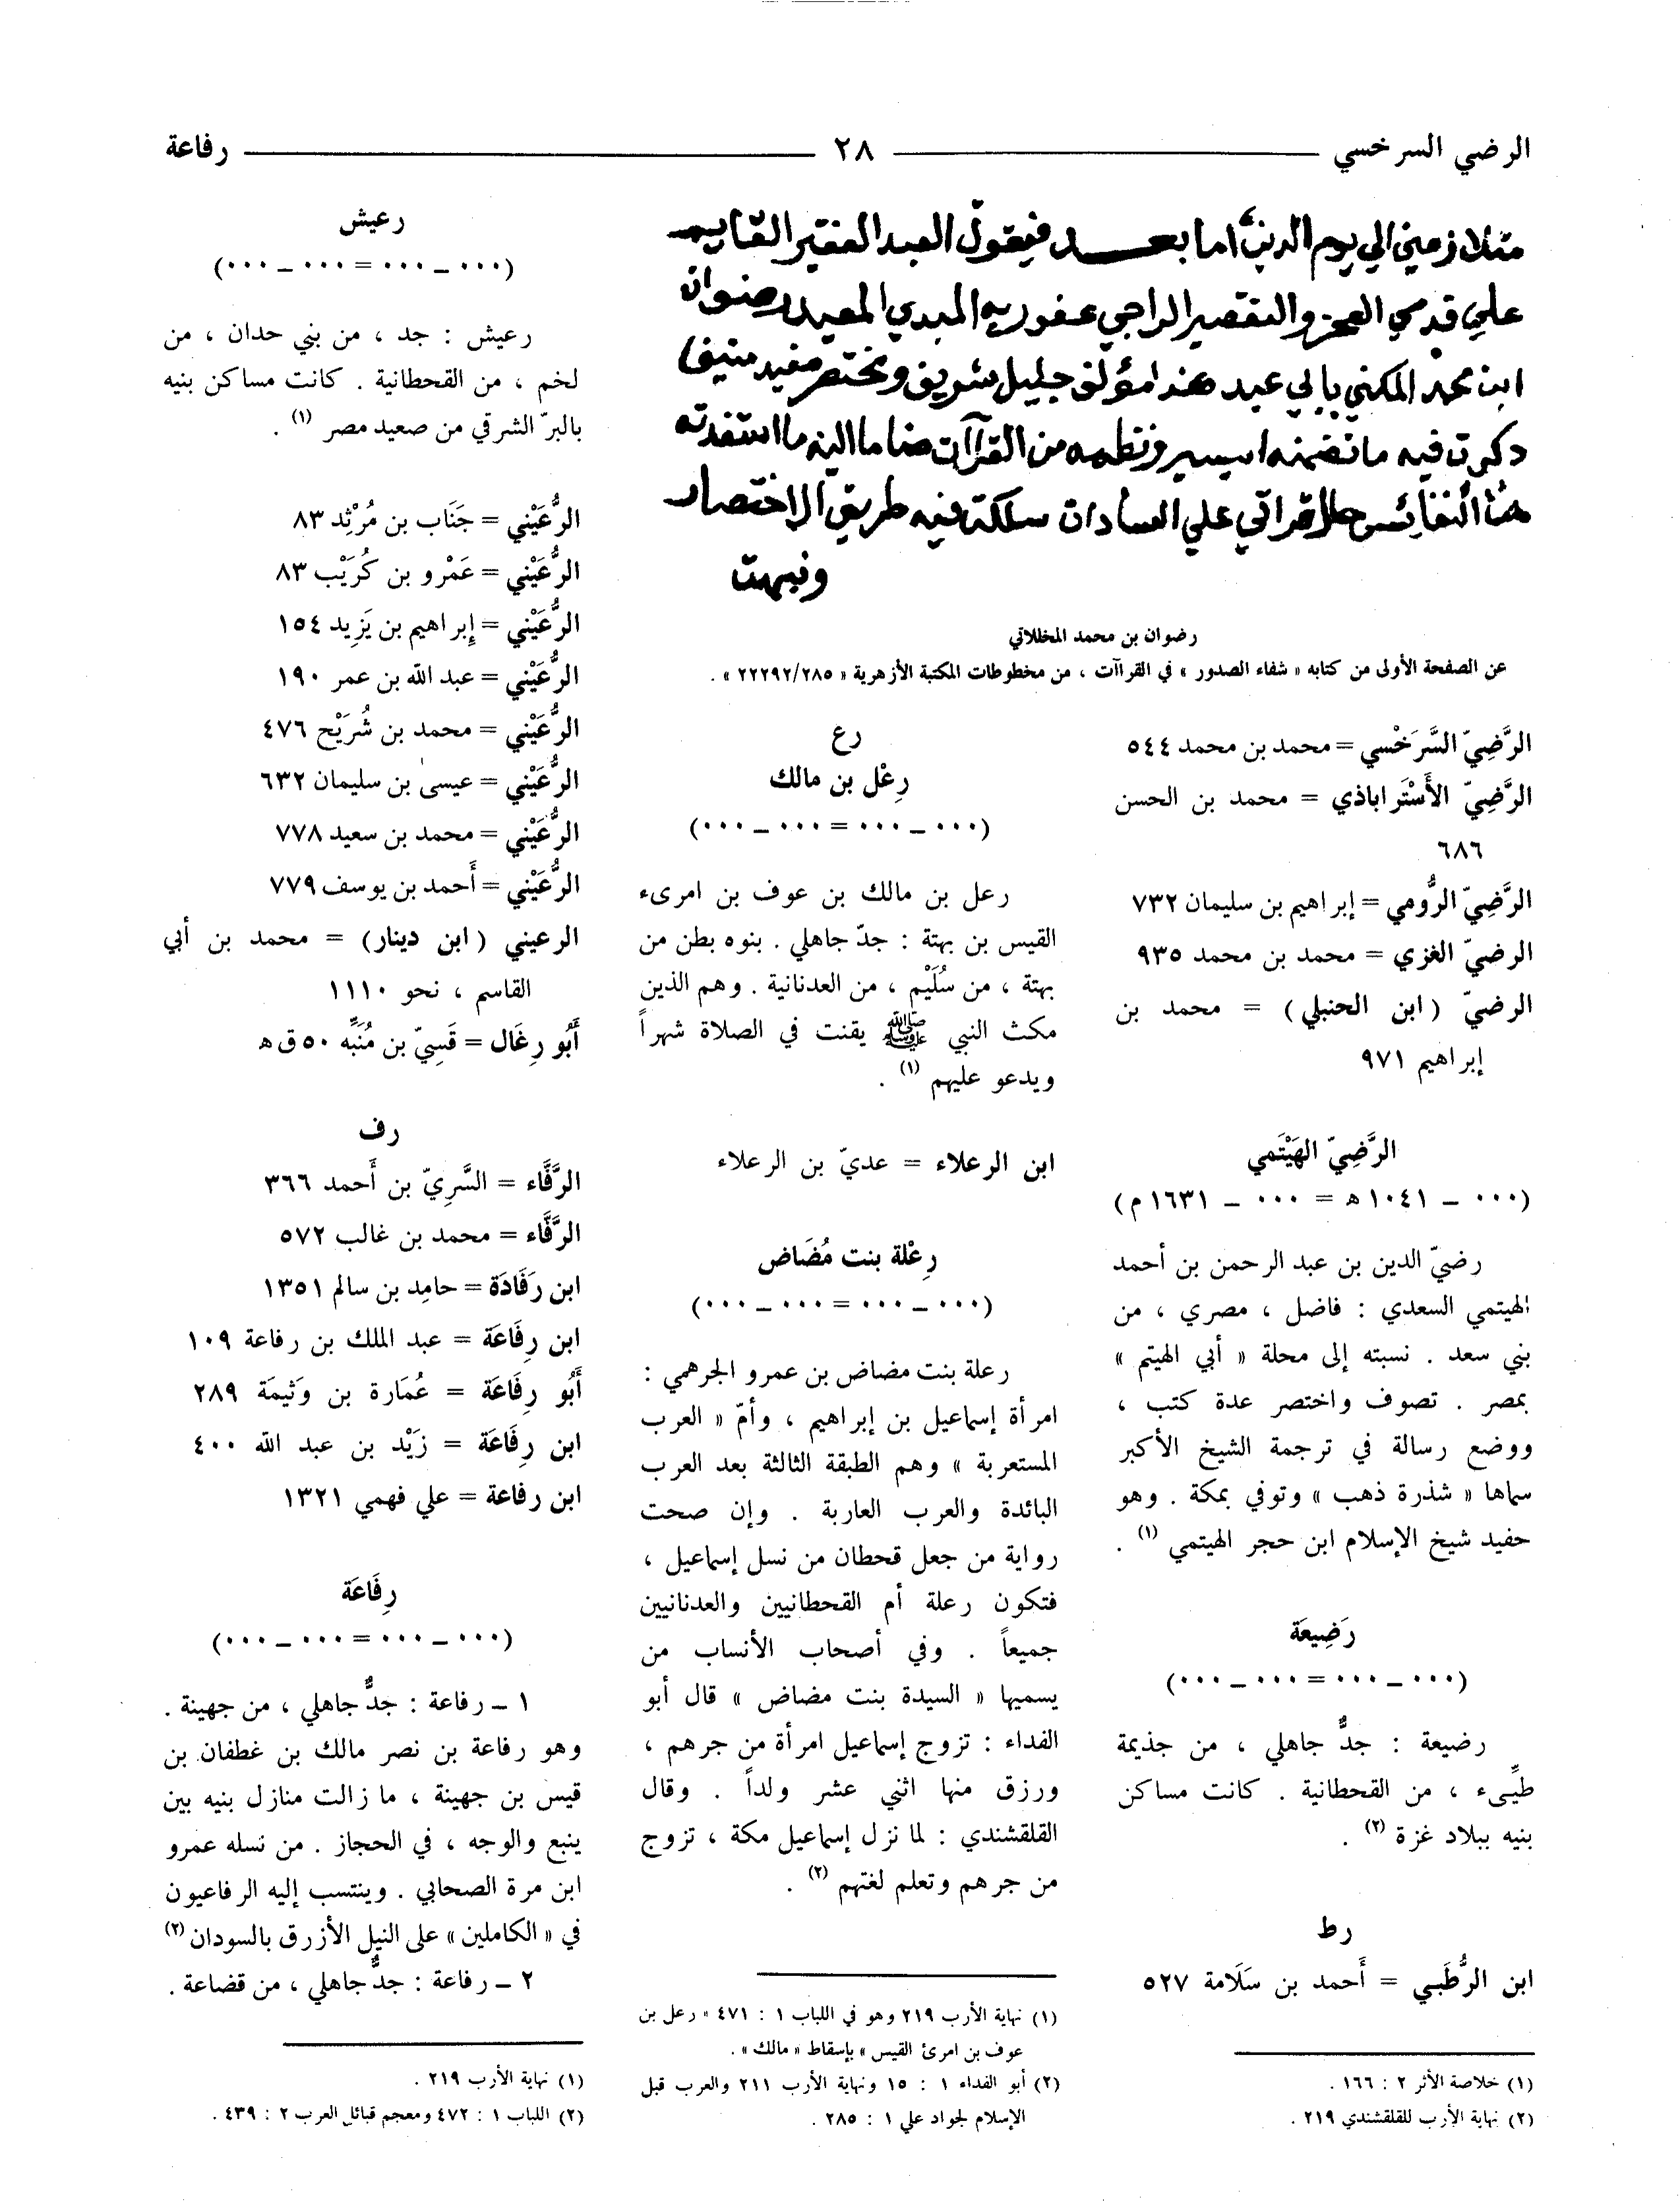 الرضي السرخسي ٢٨ رفاعة
متلازمين الي يوم الدين اما بعد فيقول العبد الفقير القايم
علي قدمي العجز والتقصير الراجي عفو ربه المبدي المعيد رضوان
ابن محمد المكني بابي عيد هذا مؤلف جليل شريف ومختصر مفيد منيف
ذكرت فيه ما تضمنه ونظمه من القراآت ضاما اليه ما استفدته
قراتي علي السادات سلكت فيه طريق الاختصار
ونبهت
رضوان بن محمد المخللاتي
عن الصفحة الأولى من كتابه « شفاء الصدور » في القراآت ، من مخطوطات المكتبة الأزهرية « ٢٢٢٩٢/٢٨٥ » .
الرَّضِيّ السَّرَخْسي = محمد بن محمد ٥٤٤
الرَّضِيّ الأَسْتَراباذي = محمد بن الحسن
٦٨٦
الرَّضِيّ الرُّومي = إبراهيم بن سليمان ٧٣٢
الرضيّ الغزي = محمد بن محمد ٩٣٥
الرضيّ ( ابن الحنبلي ) = محمد بن
إبراهيم ٩٧١
الرَّضِيّ الهَيْتَمي
(٠٠٠ ــ ١٠٤١ ه = ٠٠٠ ــ ١٦٣١ م)
رضيّ الدين بن عبد الرحمن بن أحمد
الهيتمي السعدي : فاضل ، مصري ، من
بني سعد . نسبته إلى محلة « أبي الهيتم »
بمصر . تصوف واختصر عدة كتب ،
ووضع رسالة في ترجمة الشيخ الأكبر
سماها « شذرة ذهب » وتوفي بمكة . وهو
حفيد شيخ الإسلام ابن حجر الهيتمي (١) .
رَضِيعَة
(٠٠٠ ــ ٠٠٠ = ٠٠٠ ــ ٠٠٠)
رضيعة : جدٌّ جاهلي ، من جذيمة
طيِّىء ، من القحطانية . كانت مساكن
بنيه ببلاد غزة (٢) .
رط
ابن الرُّطَبي = أَحمد بن سَلَامة ٥٢٧
(١) خلاصة الأثر ٢ : ١٦٦ .
(٢) نهاية الأرب للقلقشندي ٢١٩ .
رع
رِعْل بن مالك
(٠٠٠ ــ ٠٠٠ = ٠٠٠ ــ ٠٠٠)
رعل بن مالك بن عوف بن امرىء
القيس بن بهتة : جدّ جاهلي . بنوه بطن من
بهتة ، من سُلَيْم ، من العدنانية . وهم الذين
مكث النبي ﷺ يقنت في الصلاة شهراً
ويدعو عليهم (١) .
ابن الرعلاء = عديّ بن الرعلاء
رِعْلة بنت مُضَاض
(٠٠٠ ــ ٠٠٠ = ٠٠٠ ــ ٠٠٠)
رعلة بنت مضاض بن عمرو الجرهمي :
امرأة إسماعيل بن إبراهيم ، وأمّ « العرب
المستعربة » وهم الطبقة الثالثة بعد العرب
البائدة والعرب العاربة . وإن صحت
رواية من جعل قحطان من نسل إسماعيل ،
فتكون رعلة أم القحطانيين والعدنانيين
جميعاً . وفي أصحاب الأنساب من
يسميها « السيدة بنت مضاض » قال أبو
الفداء : تزوج إسماعيل امرأة من جرهم ،
ورزق منها اثني عشر ولداً . وقال
القلقشندي : لما نزل إسماعيل مكة ، تزوج
من جرهم وتعلم لغتهم (٢) .
(١) نهاية الأرب ٢١٩ وهو في اللباب ١ : ٤٧١ « رعل بن
عوف بن امرئ القيس » بإسقاط « مالك » .
(٢) أبو الفداء ١ : ١٥ ونهاية الأرب ٢١١ والعرب قبل
الإسلام لجواد علي ١ : ٢٨٥ .
رعيش
(٠٠٠ ــ ٠٠٠ = ٠٠٠ ــ ٠٠٠)
رعيش : جد ، من بني حدان ، من
لخم ، من القحطانية . كانت مساكن بنيه
بالبرّ الشرقي من صعيد مصر (١) .
الرُّعَيْني = جَنَاب بن مُرْثِد ٨٣
الرُّعَيْني = عَمْرو بن كُرَيْب ٨٣
الرُّعَيْني = إبراهيم بن يَزِيد ١٥٤
الرُّعَيْني = عبد الله بن عمر ١٩٠
الرُّعَيْني = محمد بن شُرَيْح ٤٧٦
الرُّعَيْني = عيسىٰ بن سليمان ٦٣٢
الرُّعَيْني = محمد بن سعيد ٧٧٨
الرُّعَيْني = أَحمد بن يوسف ٧٧٩
الرعيني ( ابن دينار ) = محمد بن أبي
القاسم ، نحو ١١١٠
أَبُو رِغَال = قَسِيّ بن مُنَبِّه ٥٠ ق ه
رف
الرَّفَّاء = السَّرِيّ بن أَحمد ٣٦٦
الرَّفَّاء = محمد بن غالب ٥٧٢
ابن رَفَادَة = حامِد بن سالم ١٣٥١
ابن رِفَاعَة = عبد الملك بن رفاعة ١٠٩
أَبُو رِفَاعَة = عُمَارة بن وَثيمَة ٢٨٩
ابن رِفَاعَة = زَيْد بن عبد الله ٤٠٠
ابن رفاعة = علي فهمي ١٣٢١
رِفَاعَة
(٠٠٠ ــ ٠٠٠ = ٠٠٠ ــ ٠٠٠)
١ ــ رفاعة : جدٌّ جاهلي ، من جهينة .
وهو رفاعة بن نصر مالك بن غطفان بن
قيس بن جهينة ، ما زالت منازل بنيه بين
ينبع والوجه ، في الحجاز . من نسله عمرو
ابن مرة الصحابي . وينتسب إليه الرفاعيون
في « الكاملين » على النيل الأزرق بالسودان (٢)
٢ ــ رفاعة : جدٌّ جاهلي ، من قضاعة .
(١) نهاية الأرب ٢١٩ .
(٢) اللباب ١ : ٤٧٢ ومعجم قبائل العرب ٢ : ٤٣٩ .